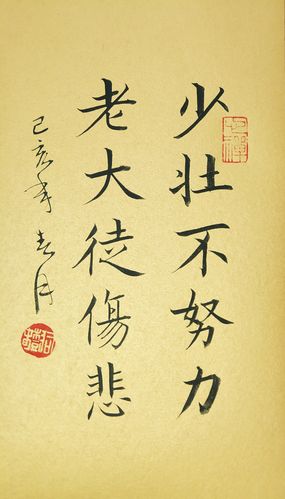 少壮不努力
老大徒傷悲
己亥年春月